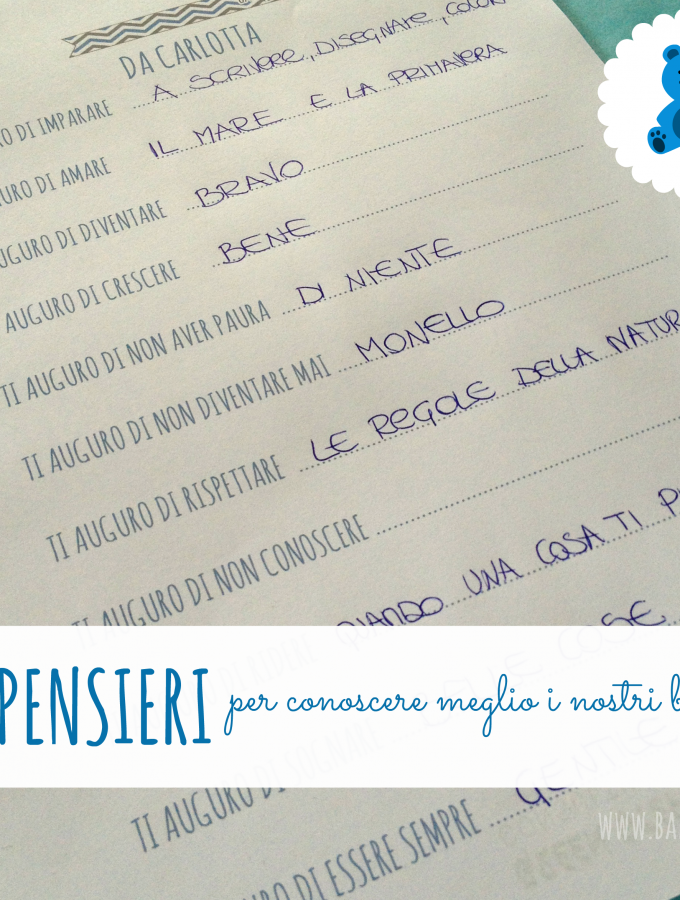 DA CARLOTTA
RO DI IMPARARE A SCRIVERE, DISEGNARE, COLOR
URO DI AMARE IL MARE E LA PRIMAVERA
UGURO DI DIVENTARE BRAVO
AUGURO DI CRESCERE BENE
TI AUGURO DI NON AVER PAURA DI NIENTE
TI AUGURO DI NON DIVENTARE MAI MONELLO
TI AUGURO DI RISPETTARE LE REGOLE DELLA NATUR
TI AUGURO DI NON CONOSCERE
QUANDO UNA COSA TI P
PENSIERI per conoscere meglio i nostri b
TI AUGURO DI
URO DI ESSERE SEMPRE GE
WWW.BA